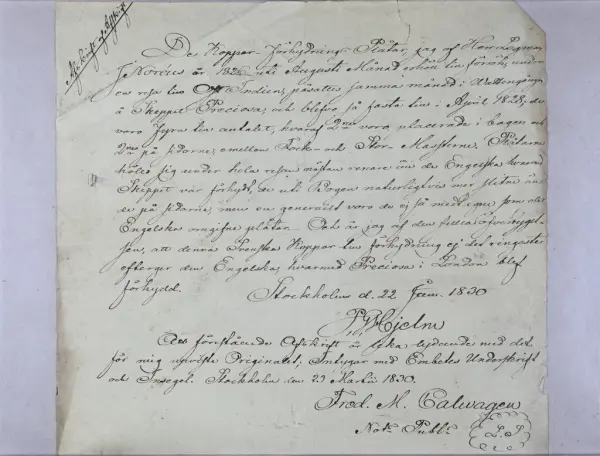 Afskrift af Afskrift
De Koppar-Förhydrings-Plåtar, jag af Herr
J. Noréus år 1826 uti Augusti Månad erhöll till försök, under
en resa till Ost Indien, påsattes samma månad i Wattengången
å Skeppet Preciosa, och blefvo så fasta till i April 1828; de
voro fyra till antalet, hvaraf 2ne voro placerade i bogen och
2ne på sidorne, emellan Fock- och Stor-Masterne. Plåtarne
höllo sig under hela resan nästan renare än de Engelska hvarmed
Skeppet var förhydt, de uti Bogen naturligtvis mer slitne än
de på sidorne, men en generallt voro de ej så medtagne som de
Engelska omgifne plåtar. Och är jag af den fullia öfvertygel
sen, att denna Svenska Koppar till förhydning ej det ringaste
eftergir den Engelska, hvarmed Preciosa i London blef
förhydd.
Stockholm d. 22 1830
Hjelm
Att förestående Afskrift är lika lydande med det
för mig upviste Originalet; Intygar med Embetes Underskrift
och Insegel. Stockholm den 23 Martii 1830.
Fred. M. Calwagen
Not. Publ.
L. S.